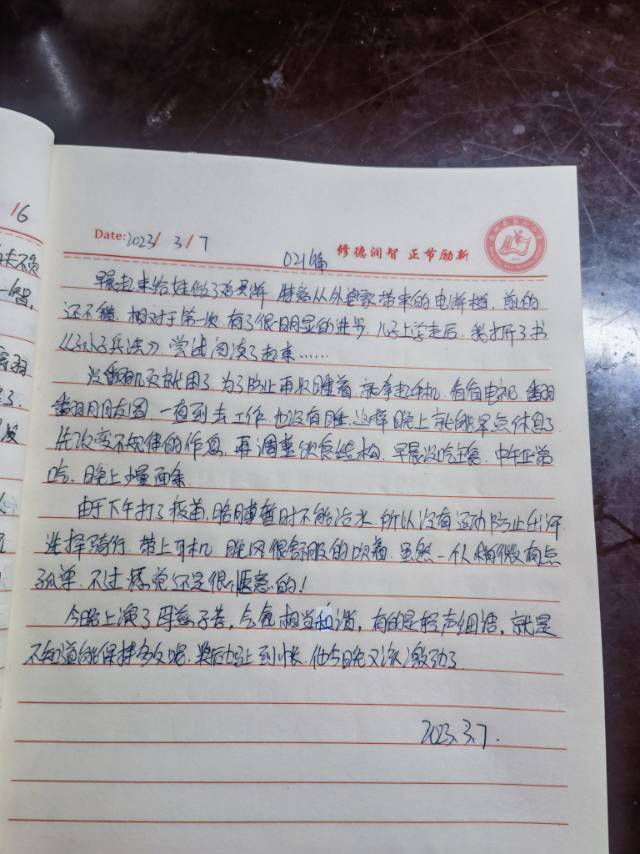 16
Date: 2023/ 3/7
021篇
修德润智 正节励新
早晨起来给娃做了鸡蛋饼 特意从外婆家带来的电饼档，煎的
还不错，相对于第一次 有了很明显的进步，儿子上学走后，我打开了书
《孙子兵法》尝试阅读了起来……
没翻几页就困了，为了防止再次睡着 就拿起手机，看看电视 翻翻
翻朋友圈 一直到去工作 也没有睡，这样晚上就能早点休息了
先改变不规律的作息，再调整饮食结构，早晨没吃 中午正常
吃，晚上一撮面条
由于下午打了疫苗，胳膊暂时不能沾水，所以没有运动防止出汗
选择骑行 带上耳机 晚风很舒服的吹着 虽然一个人稍微有点
孤单，不过感觉还是很惬意的！
今晚上演了母慈子孝，气氛相当和谐，有的是轻声细语，就是
不知道能保持多久呢，
2023.3.7.